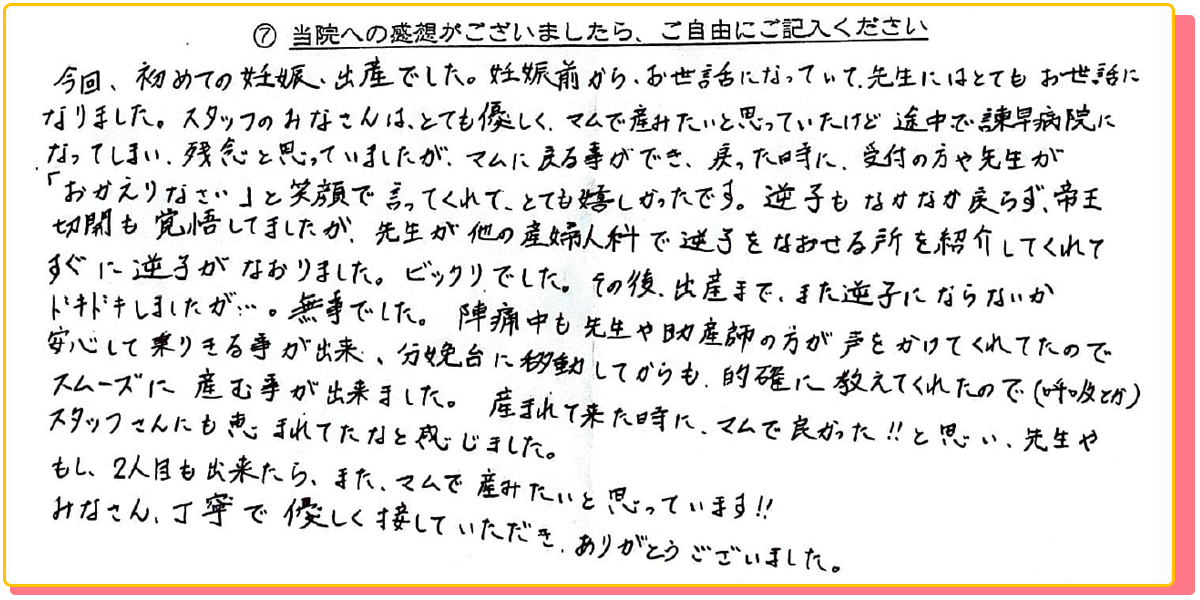 ⑦ 当院への感想がございましたら、ご自由にご記入ください
今回、初めての妊娠、出産でした。妊娠前から、お世話になっていて、先生にはとてもお世話に
なりました。スタッフのみなさんは、とても優しく、マムで産みたいと思っていたけど途中で諫早病院に
なってしまい、残念と思っていましたが、マムに戻る事ができ、戻った時に、受付の方や先生が
「おかえりなさい」と笑顔で言ってくれて、とても嬉しかったです。逆子もなかなか戻らず、帝王
切開も覚悟してましたが、先生が他の産婦人科で逆子をなおせる所を紹介してくれて
すぐに逆子がなおりました。ビックリでした。その後、出産まで、また逆子にならないか
ドキドキしましたが…。無事でした。陣痛中も先生や助産師の方が声をかけてくれてたので
安心して乗りきる事が出来、分娩台に移動してからも、的確に教えてくれたので(呼吸とか)
スムーズに産む事が出来ました。産まれて来た時に、マムで良かった!!と思い、先生や
スタッフさんにも恵まれてたなと感じました。
もし、2人目も出来たら、また、マムで産みたいと思っています!!
みなさん、丁寧で優しく接していただき、ありがとうございました。